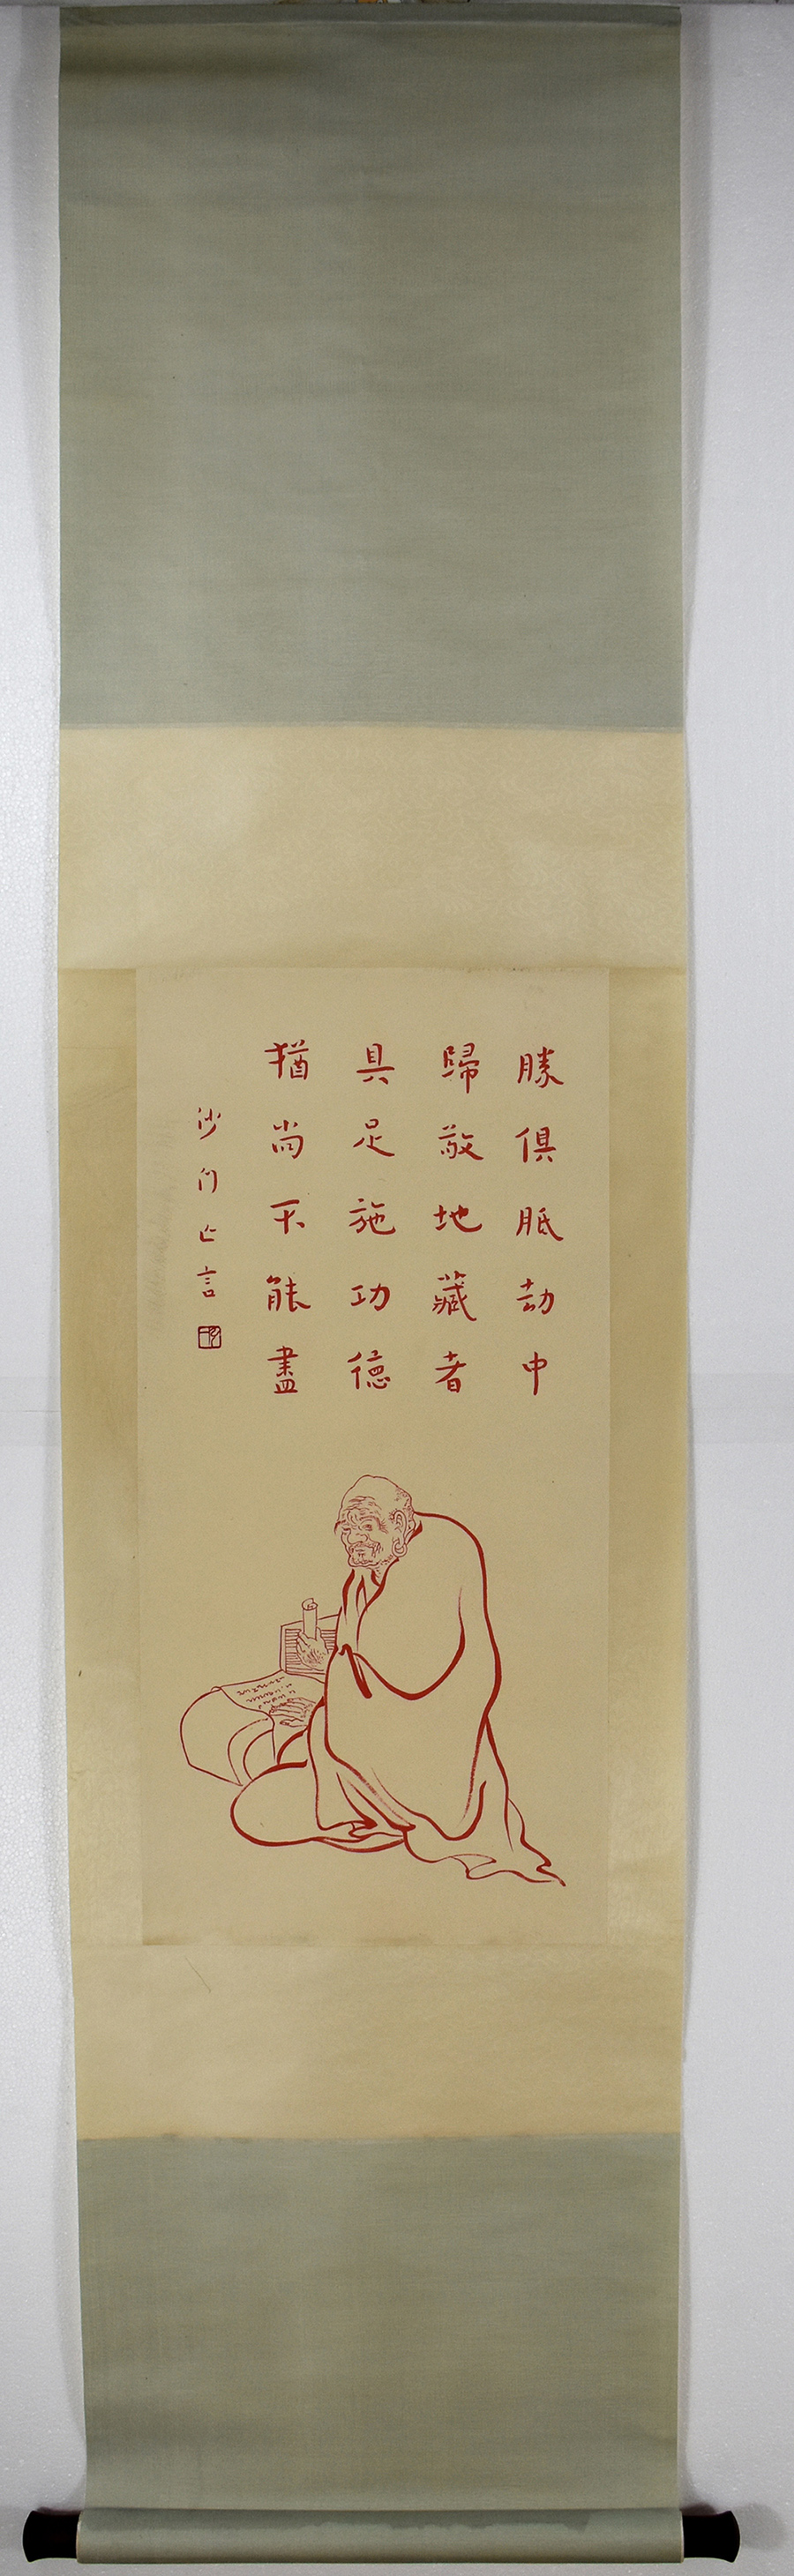 勝俱胝劫中
歸敬地藏者
具足施功德
猶尚不能盡
沙門亡言